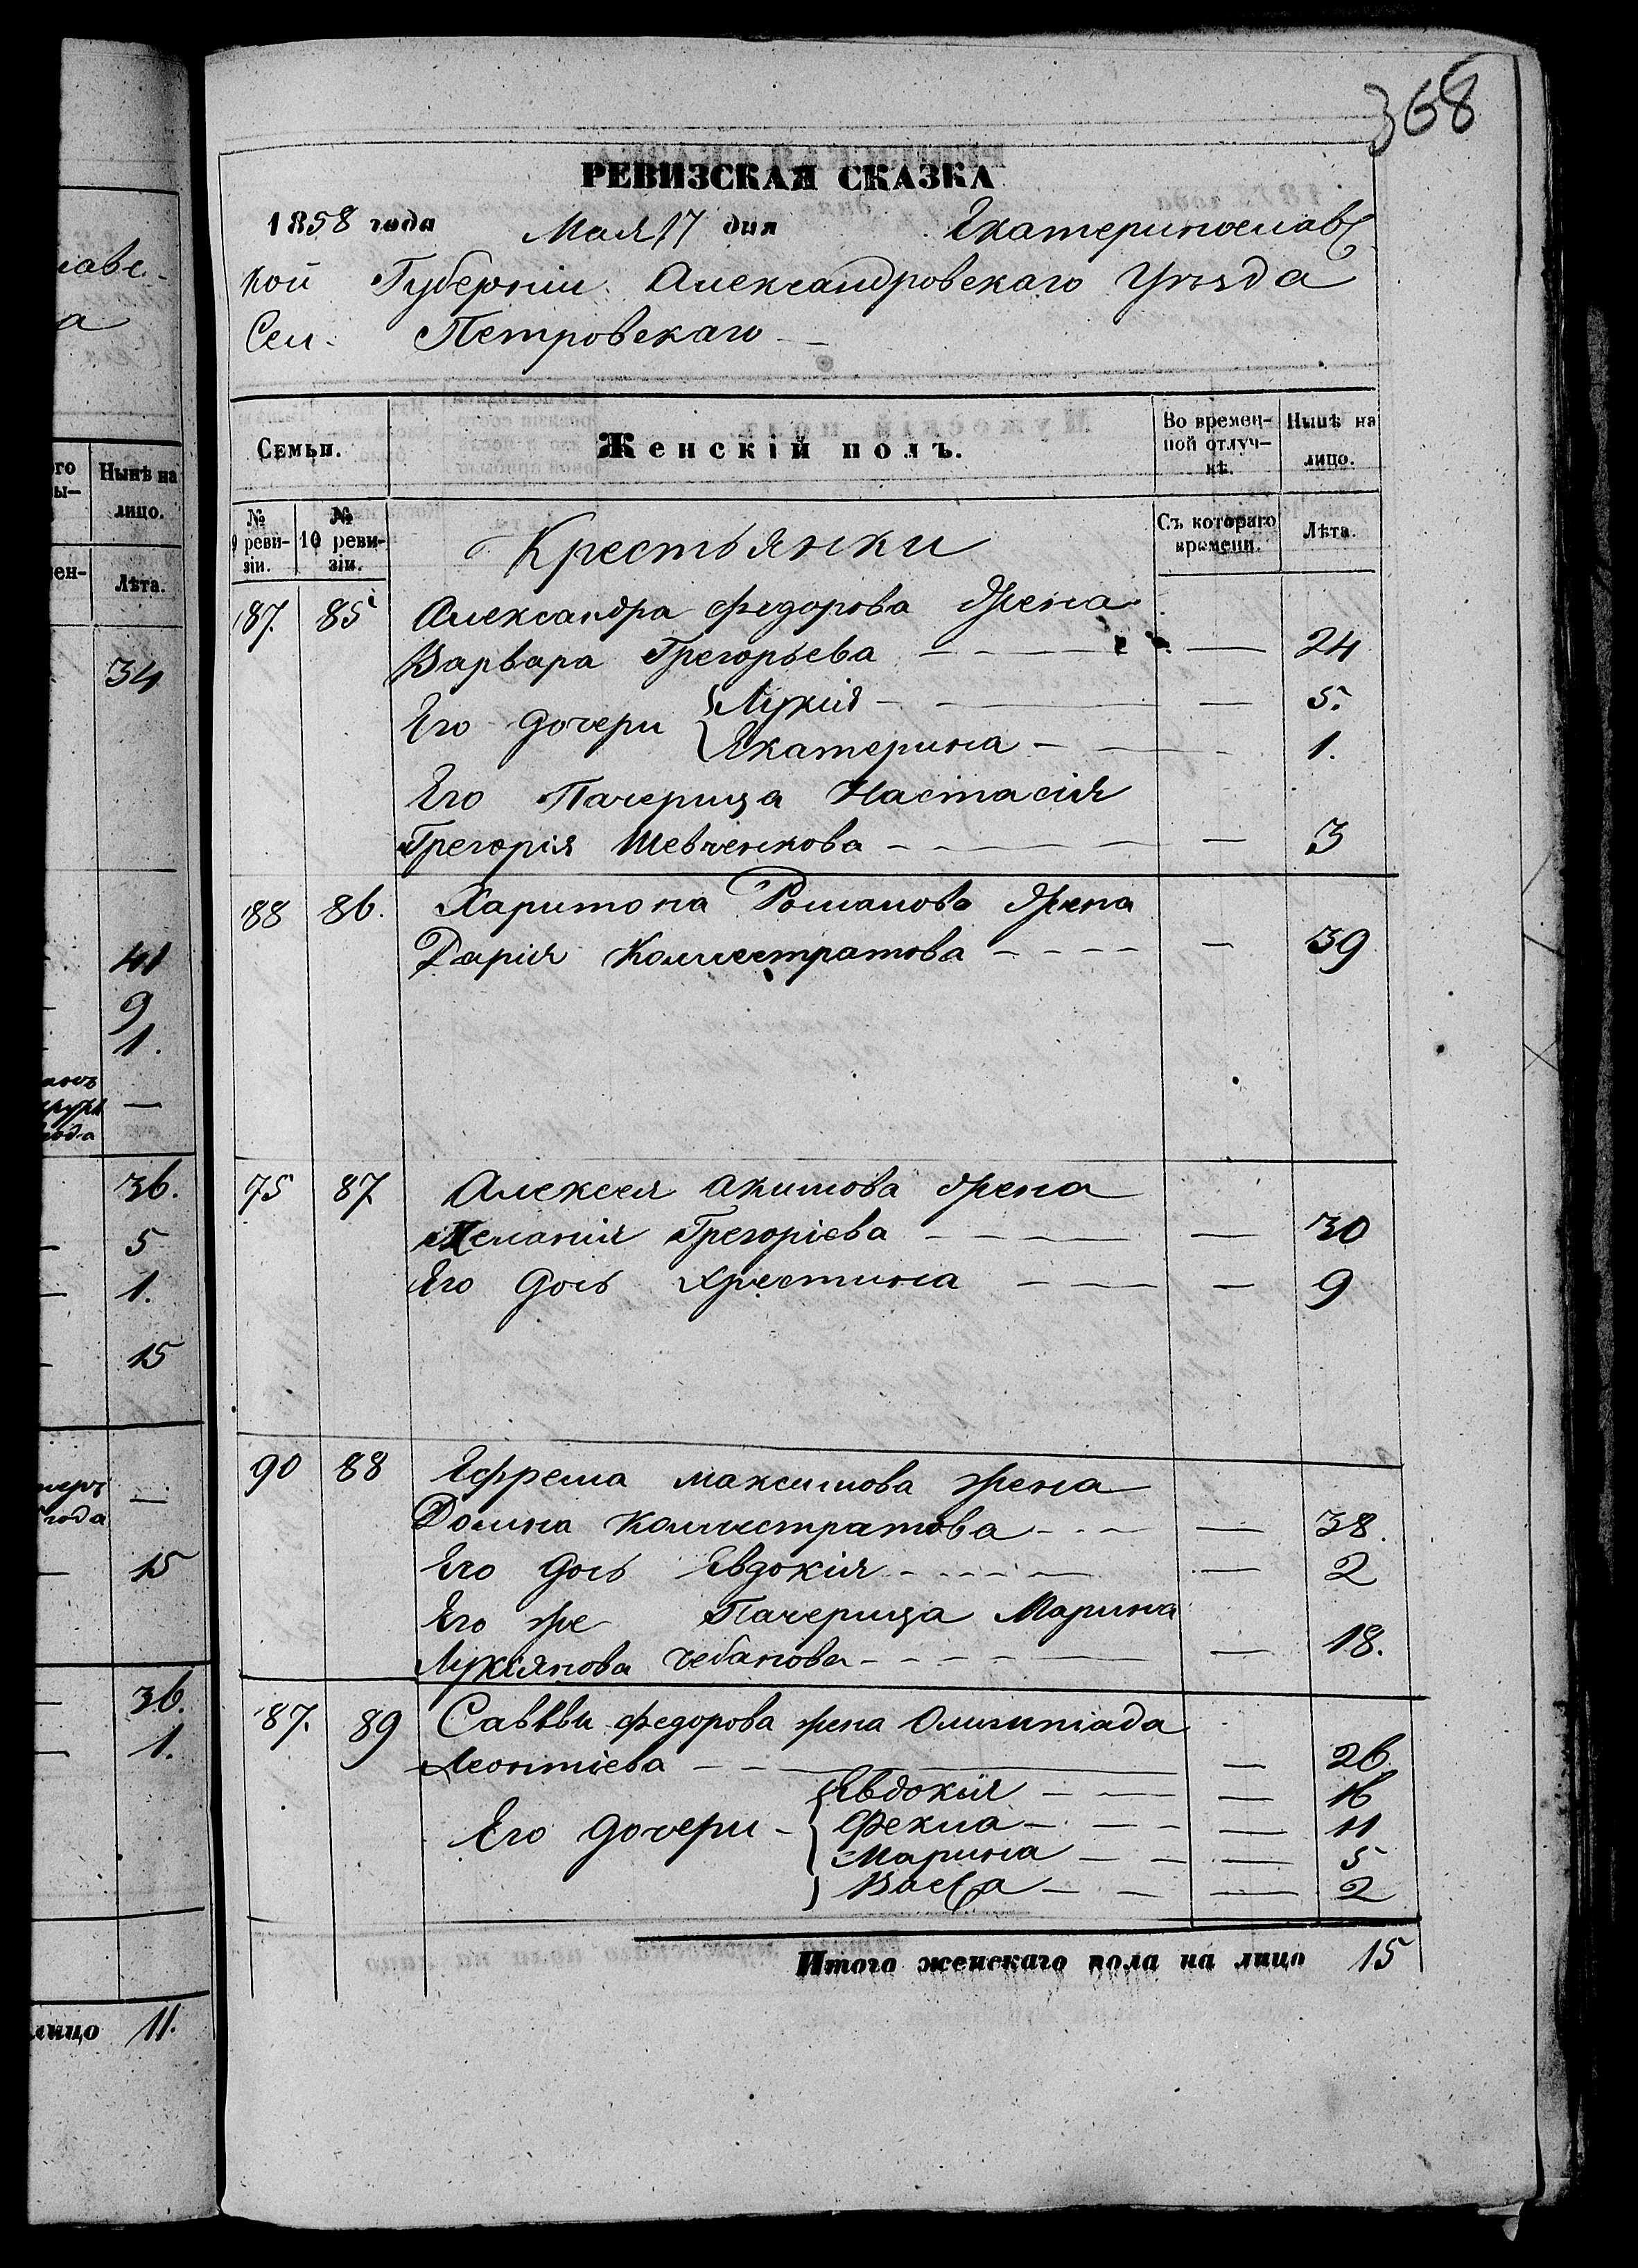 лавс-
а
го
ы-
Нынѣ на
лицо.
ен-
Лѣта.
34
41
9
1.
—
года
36.
5
1.
15
—
года
15
36.
1.
лицо 11.
368
РЕВИЗСКАЯ СКАЗКА
1858 года Мая 17 дня Екатеринославс
кой Губерніи Александровскаго Уѣзда
Сел. Петровскаго
Семьи. Женскій полъ. Во времен- Нынѣ на
ной отлуч- лицо.
кѣ.
№ 9 реви- зіи. № 10 реви- зіи. Крестьянки Съ котораго времени. Лѣта.
187. 85 Александра Федорова Жена
Варвара Грегорьева — 24
Его дочери { Лукія — 5.
Екатерина — 1.
Его Пачерица Настасія
Грегорія Шевченкова — 3
88 86. Харитона Романова Жена
Дарія Коллестратова — 39
75 87 Алексея Акимова Жена
Меланія Грегоріева — 30
Его дочь Хрестина — 9
90 88 Ефрема Максимова жена
Домна Коллестратова — 38.
Его дочь Евдокія — 2
Его же Пачерица Марина
Лукіянова Чебанова — 18.
87. 89 Саввы Федорова жена Олимпіада
Леонтіева — 26
Его дочери { Евдокія — 16
Фекла — 11
Марина — 5
Васса — 2
Итого женскаго пола на лицо 15